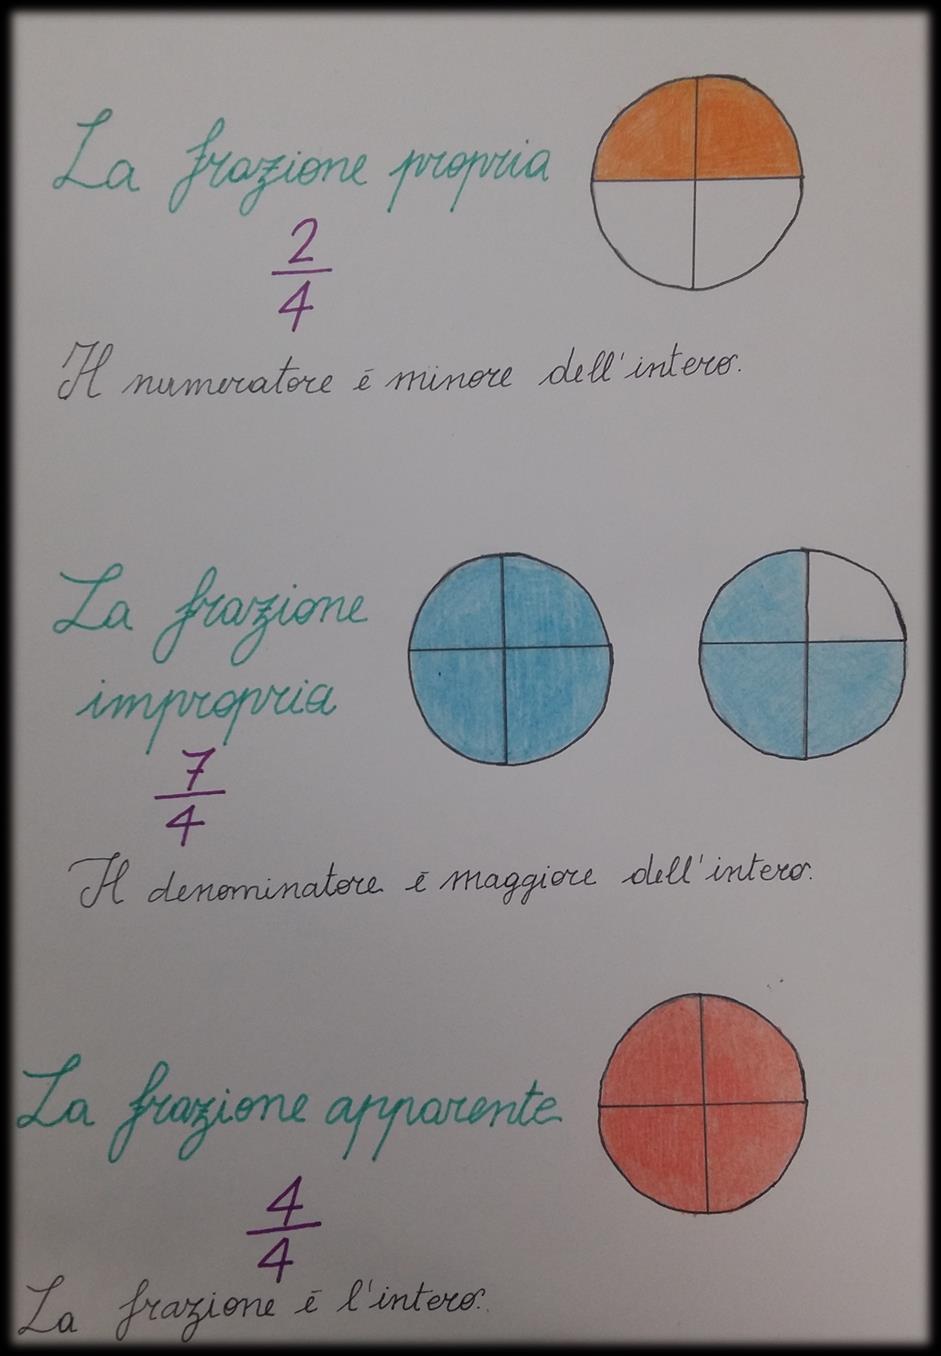 La frazione propria
2
4
Il numeratore è minore dell'intero.
La frazione
impropria
7
4
Il denominatore è maggiore dell'intero.
La frazione apparente
4
4
La frazione è l'intero.